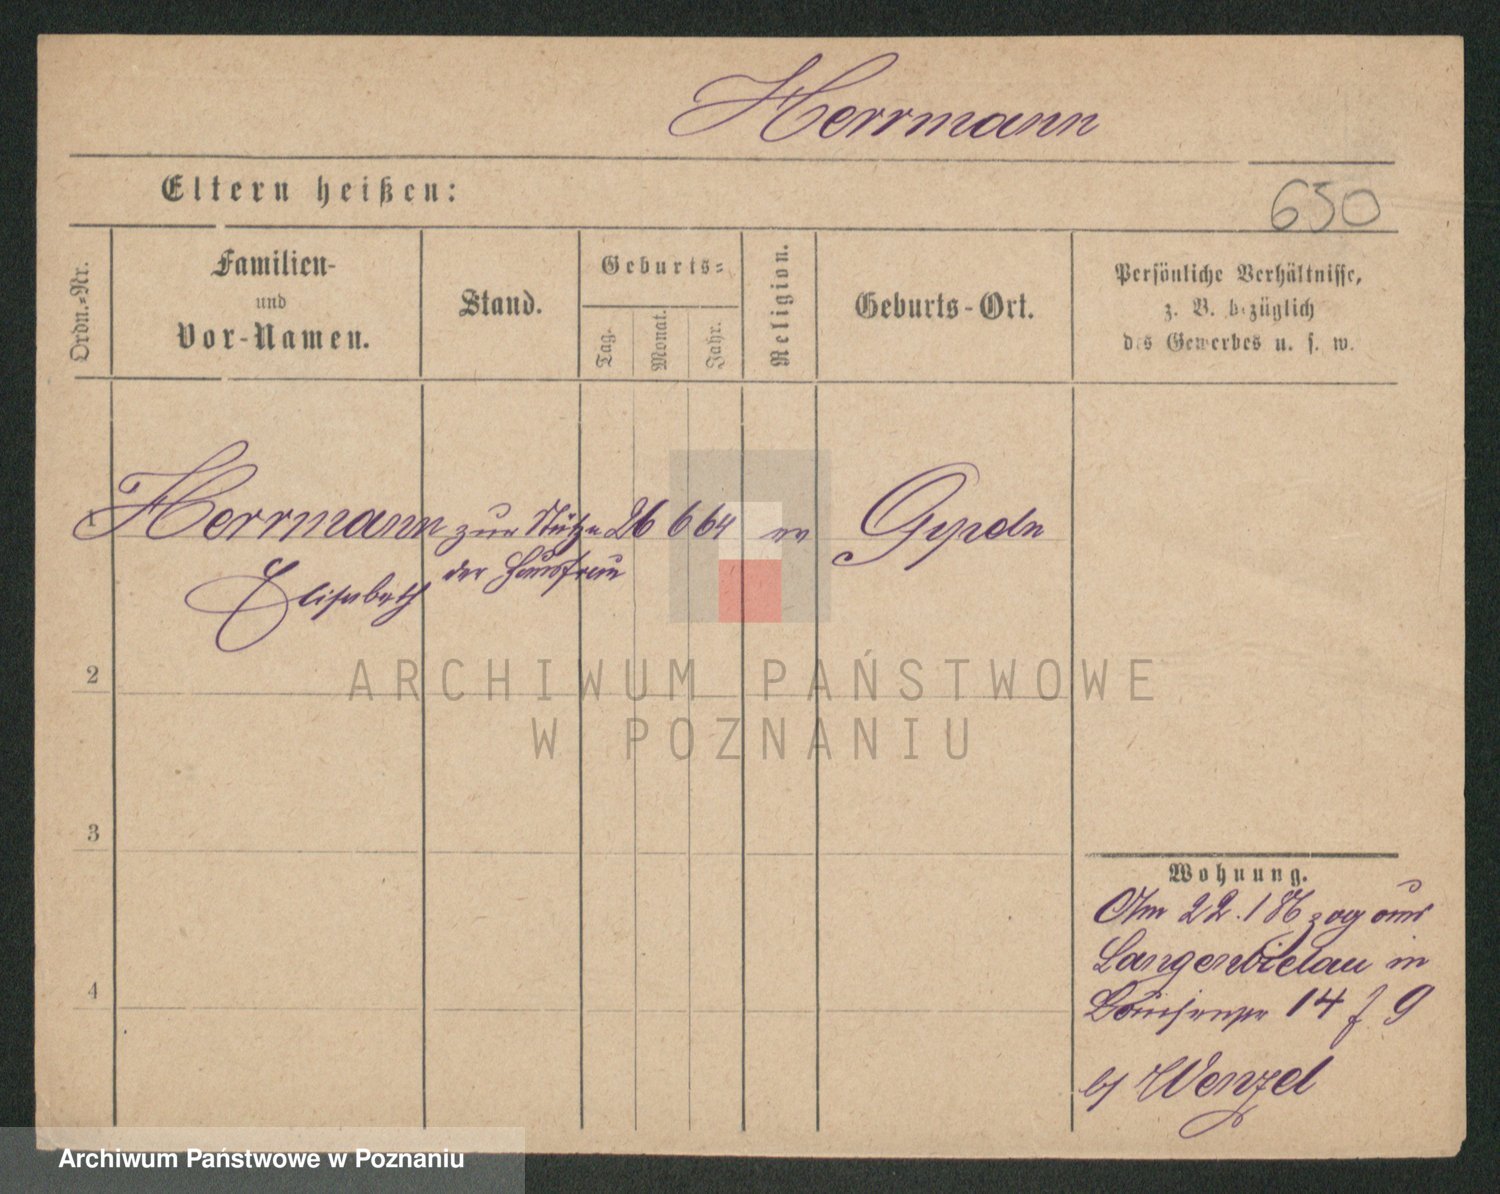 Herrmann
Eltern heißen:
650
Ordn.-Nr.
Familien-
und
Vor-Namen.
Stand.
Geburts-
Tag.
Monat.
Jahr.
Religion.
Geburts-Ort.
Persönliche Verhältnisse,
z. B. bezüglich
des Gewerbes u. s. w.
1
Herrmann zur Stütze 26 6 64 ev
Elisabeth der Hausfrau
2
ARCHIWUM PAŃSTWOWE
W POZNANIU
3
4
Wohnung.
Am 22.1 86 zog aus
Langenbielau in
14 f 9
b/ Wenzel
Archiwum Państwowe w Poznaniu